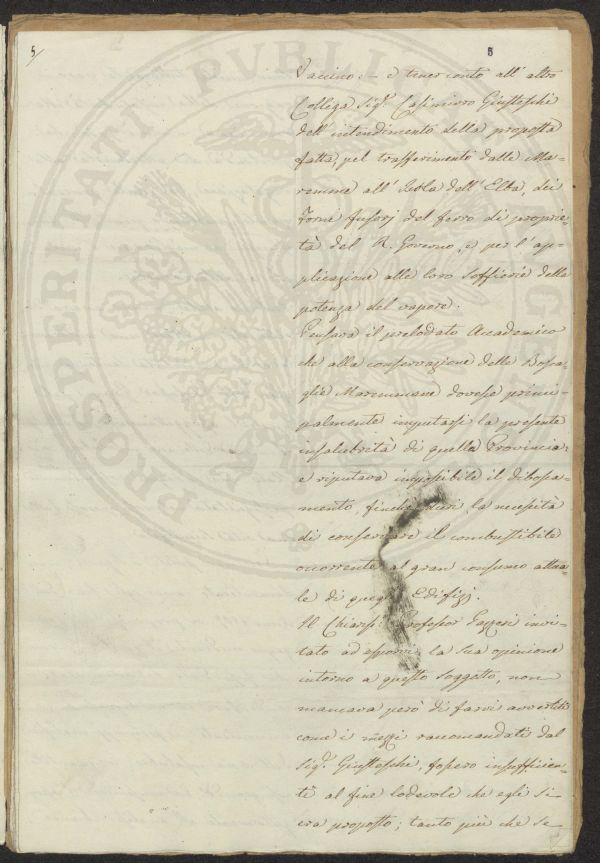 5/
5
Vaccino: – e tener conto all' altro
Collega Sig.r Casimirro Giusteschi
dell' intendimento della proposta
fatta, pel trasferimento dalle Ma=
remme all' Isola dell' Elba, dei
Forni fusorj del ferro di proprie=
tà del R. Governo, e per l' ap=
plicazione alle loro soffierie della
potenza del vapore.
Pensava il prelodato Accademico
che alla conservazione delle Bosca=
glie Maremmane dovesse princi=
palmente imputarsi la presente
insalubrità di quella Provincia:
e riputava impossibile il dibosca=
mento, finchè duri la necessità
di conservare il combustibile
occorrente al gran consumo attua=
le di quegli Edifizj.
Il Chiariss.o Professor Gazzeri invi=
tato ad esporvi la sua opinione
intorno a questo soggetto, non
mancava però di farvi avvertiti
come i mezzi raccomandati dal
Sig.r Giusteschi, fosser insufficien=
ti al fine lodevole che egli si
era proposto; tanto più che se=
PROSPERITATI PVBLI